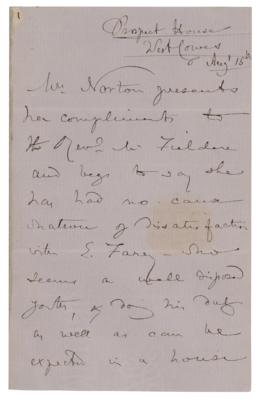 1
Prospect House
West Cowes
Aug 15th
Mrs Norton presents
her compliments to
the Revd Mr
and begs to say she
has had no cause
whatever of dissatisfaction
with E. Farey who
seems a well disposed
youth, & doing his duty
as well as can be
expected in a house